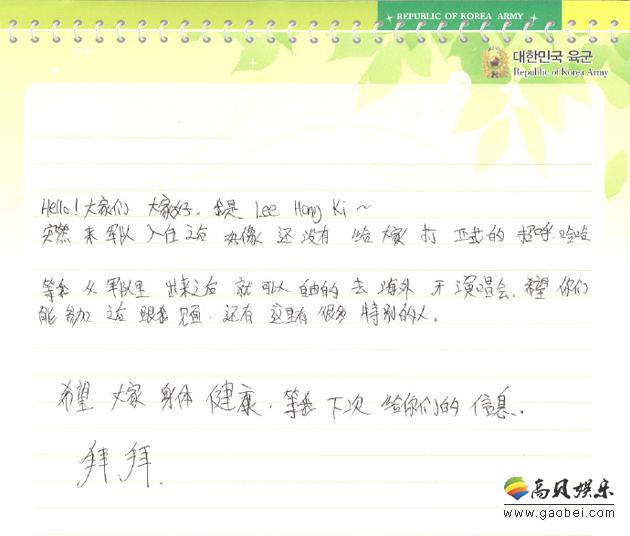 REPUBLIC OF KOREA ARMY
대한민국 육군
Republic of Korea Army
Hello! 大家们 大家好. 我是 Lee Hong Ki ~
突然 来 军队 入住 之后 好像 还 没有 给 大家 打 正式的 招呼 哈哈
等我 从 军队里 出来之后 就 可以 自由的 去 海外 开 演唱会. 希望 你们
能 参加 之后 跟我 见面. 还有 这里有 很多 特别的人。
希望 大家 身体 健康. 等我 下次 给你们的 信息.
拜 拜.
高贝娱乐
www.gaobei.com